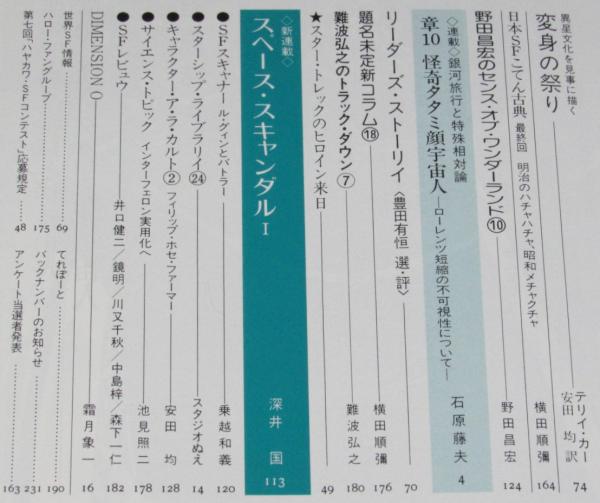 異星文化を見事に描く
変身の祭り
テリイ・カー
安田 均訳 74
日本SFこてん古典 最終回 明治のハチャハチャ、昭和メチャクチャ 横田順彌 164
野田昌宏のセンス・オブ・ワンダーランド⑩ 野田昌宏 124
〈連載〉銀河旅行と特殊相対論
章10 怪奇タタミ顔宇宙人―ローレンツ短縮の不可視性について― 石原藤夫 4
リーダーズ・ストーリイ〈豊田有恒 選・評〉 70
題名未定新コラム⑱ 横田順彌 176
難波弘之のトラック・ダウン⑦ 難波弘之 180
★スター・トレックのヒロイン来日 49
〈新連載〉
スペース・スキャンダルⅠ 深井 国 113
●SFスキャナー ル・グィンとバトラー 乗越和義 120
●スターシップ・ライブラリイ㉔ スタジオぬえ 14
●キャラクター・ア・ラ・カルト② フィリップ・ホセ・ファーマー 安田 均 128
●サイエンス・トピック インターフェロン実用化へ 池見照二 178
●SFレビュウ 井口健二/鏡明/川又千秋/中島梓/森下一仁 182
DIMENSION O 霜月象一 16
世界SF情報 69
ハロー・ファングループ 175
第七回「ハヤカワ・SFコンテスト」応募規定 48
てれぽーと 190
バックナンバーのお知らせ 231
アンケート当選者発表 163